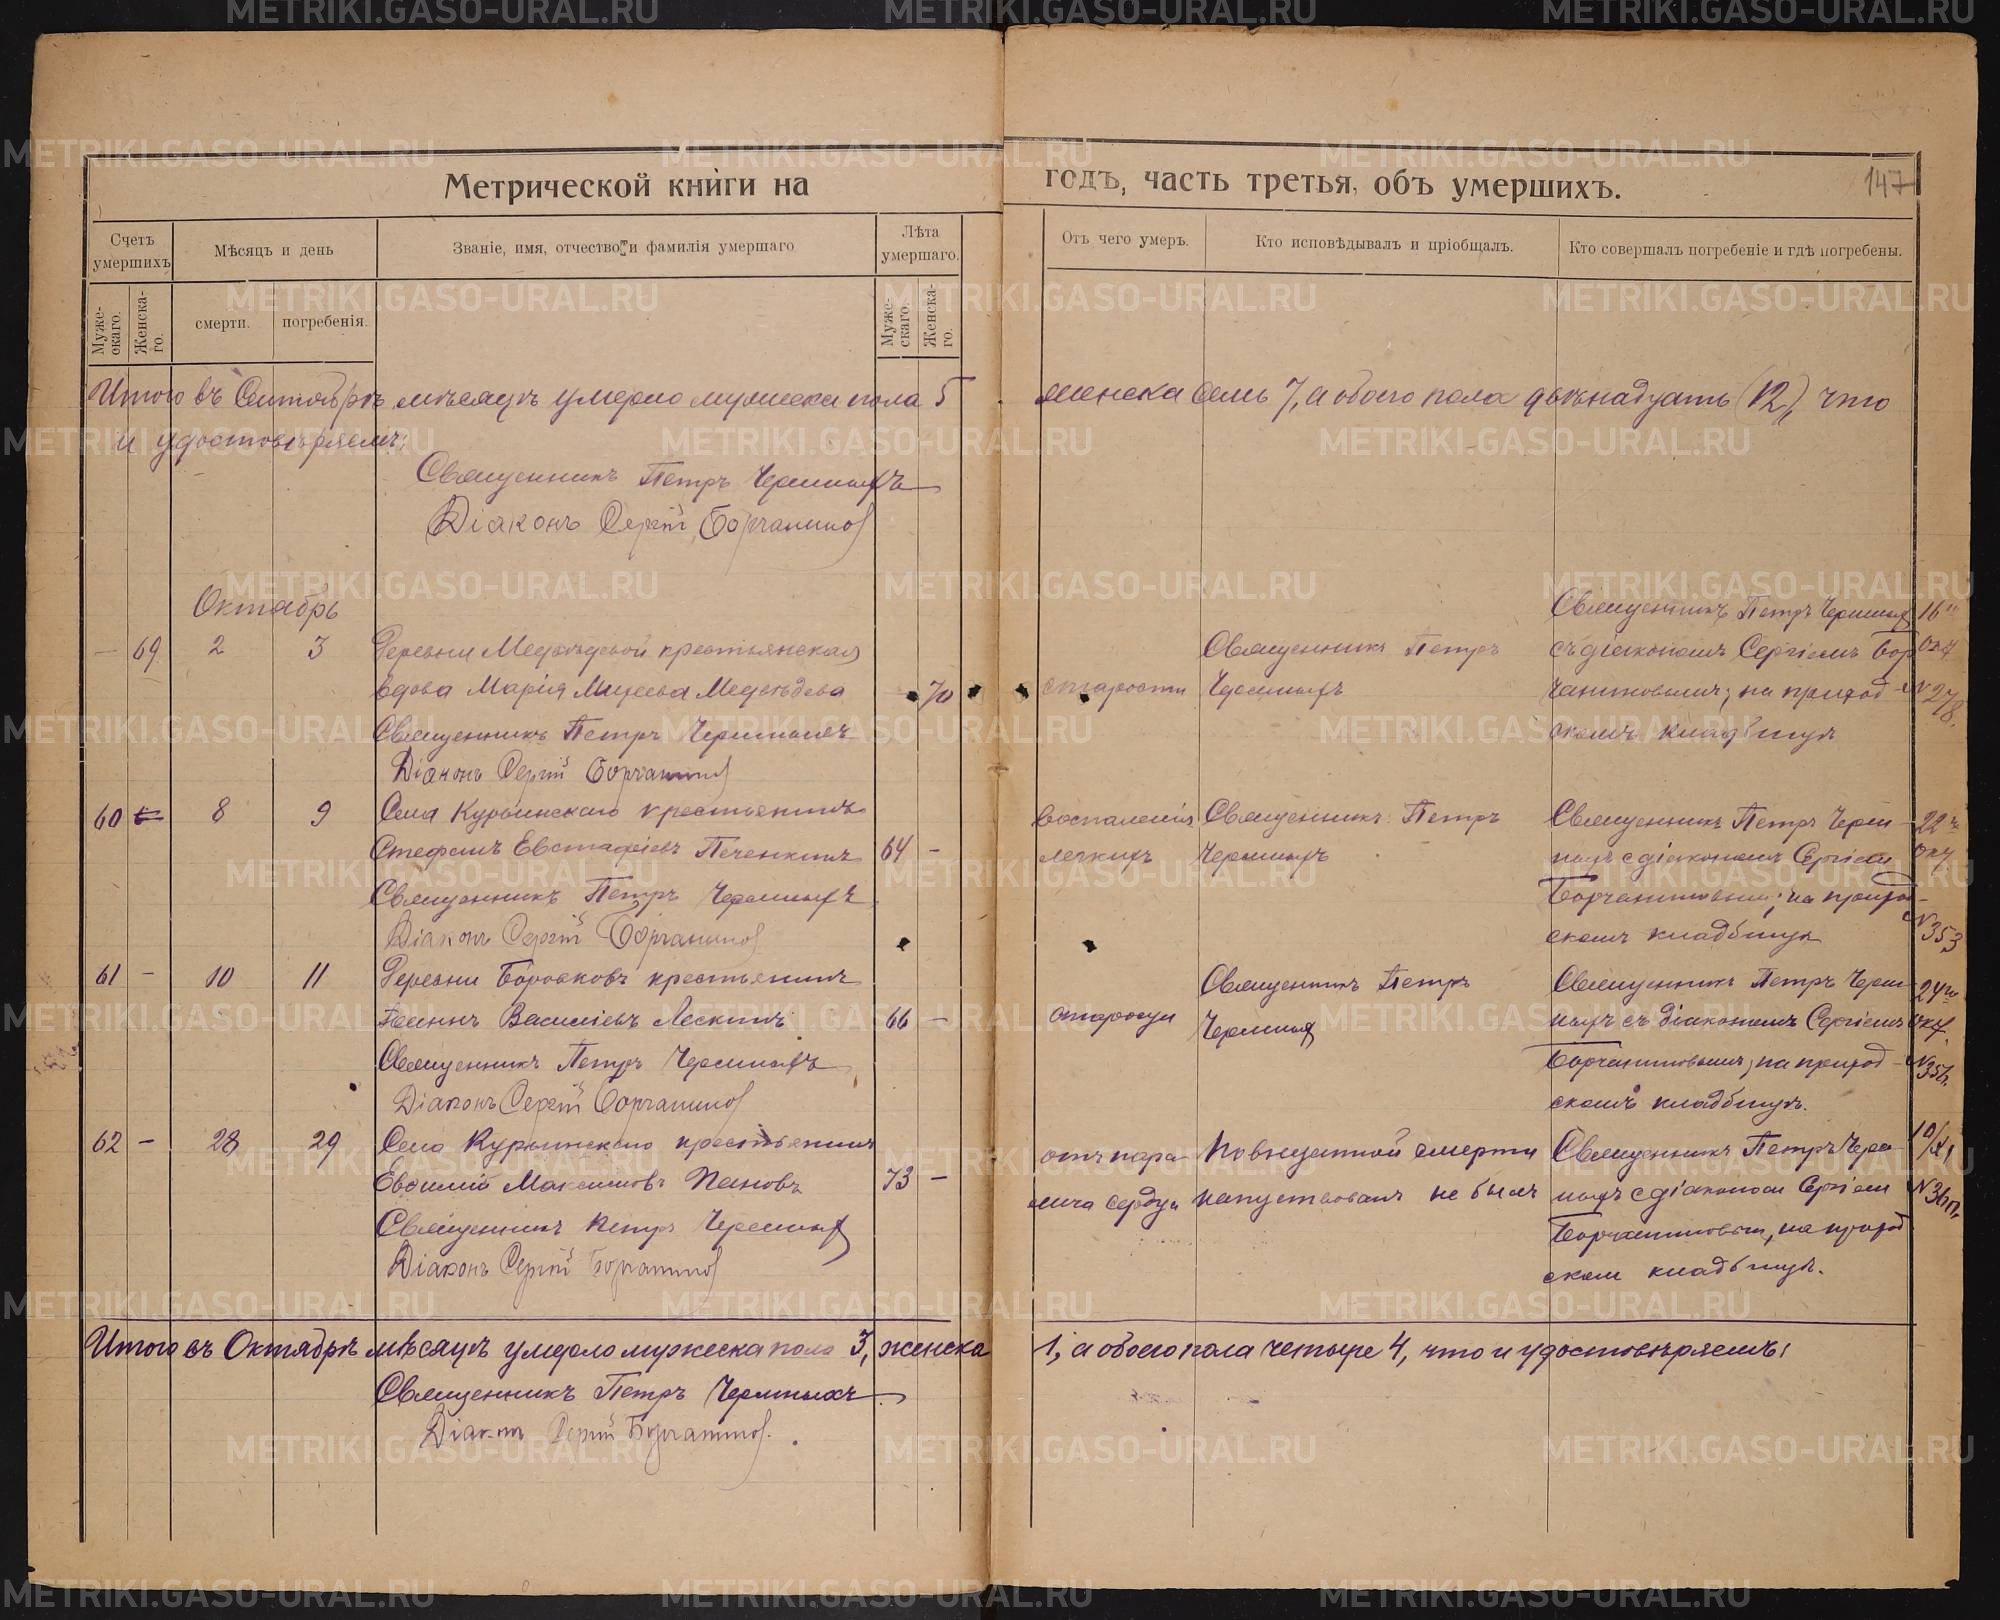 Метрической книги на
годъ, часть третья, объ умершихъ.
147
Счетъ умершихъ.
Мѣсяцъ и день
Званіе, имя, отчество и фамилія умершаго
Лѣта умершаго.
Отъ чего умеръ.
Кто исповѣдывалъ и пріобщалъ.
Кто совершалъ погребеніе и гдѣ погребены.
Муже-скаго.
Женска-го.
смерти.
погребенія.
Муже-скаго.
Женска-го.
Итого въ Сентябрѣ мѣсяцѣ умерло мужеска пола 5
женска семь 7, а обоего пола двѣнадцать (12), что
и удостовѣряемъ:
Священникъ Петръ Черемныхъ
Діаконъ Сергій Борчанинов
Октябрь
— 69 2 3 Деревни Медвѣдевой крестьянская
вдова Марія Медвѣдева 70
Священникъ Петръ Черемныхъ
Діаконъ Сергій Борчанинов
старости
Священникъ Петръ
Черемныхъ
Священникъ Петръ Черемных
съ діакономъ Сергіемъ Бор
чаниновымъ; на приход
скомъ кладбищѣ
16
окт
№ 278.
60 8 9 Села Курьинскаго крестьянинъ
Стефанъ Евстафіевъ Печенкинъ 64 —
Священникъ Петръ Черемныхъ
Діаконъ Сергій Борчанинов
воспаленія
легкихъ
Священникъ Петръ
Черемныхъ
Священникъ Петръ Черем
ныхъ с діакономъ Сергіем
Борчаниновым; на приход-
скомъ кладбищѣ
22
окт
№ 353
61 — 10 11 Деревни Боровковъ крестьянинъ
Іоаннъ Василіевъ Лескинъ 66 —
Священникъ Петръ Черемныхъ
Діаконъ Сергій Борчанинов
старости
Священникъ Петръ
Черемных
Священникъ Петръ Черем
ныхъ съ діакономъ Сергіемъ
Борчаниновымъ; на приход
скомъ кладбищѣ.
24го
окт.
62 — 28 29 Села Курьинскаго крестьянинъ
Евфимій Максимовъ Пановъ 73 —
Священникъ Петръ Черемных
Діаконъ Сергій Борчанинов
отъ пара
лича сердца
По внезапной смерти
напутствованъ не былъ
Священникъ Петръ Черем
ныхъ с діакономъ Сергіем
Борчаниновым, на приход
ском кладбищѣ.
10/XI
Итого въ Октябрѣ мѣсяцѣ умерло мужеска пола 3, женска
1, а обоего пола четыре 4, что и удостовѣряемъ:
Священникъ Петръ Черемныхъ
Діаконъ Сергій Борчанинов.
METRIKI.GASO-URAL.RU